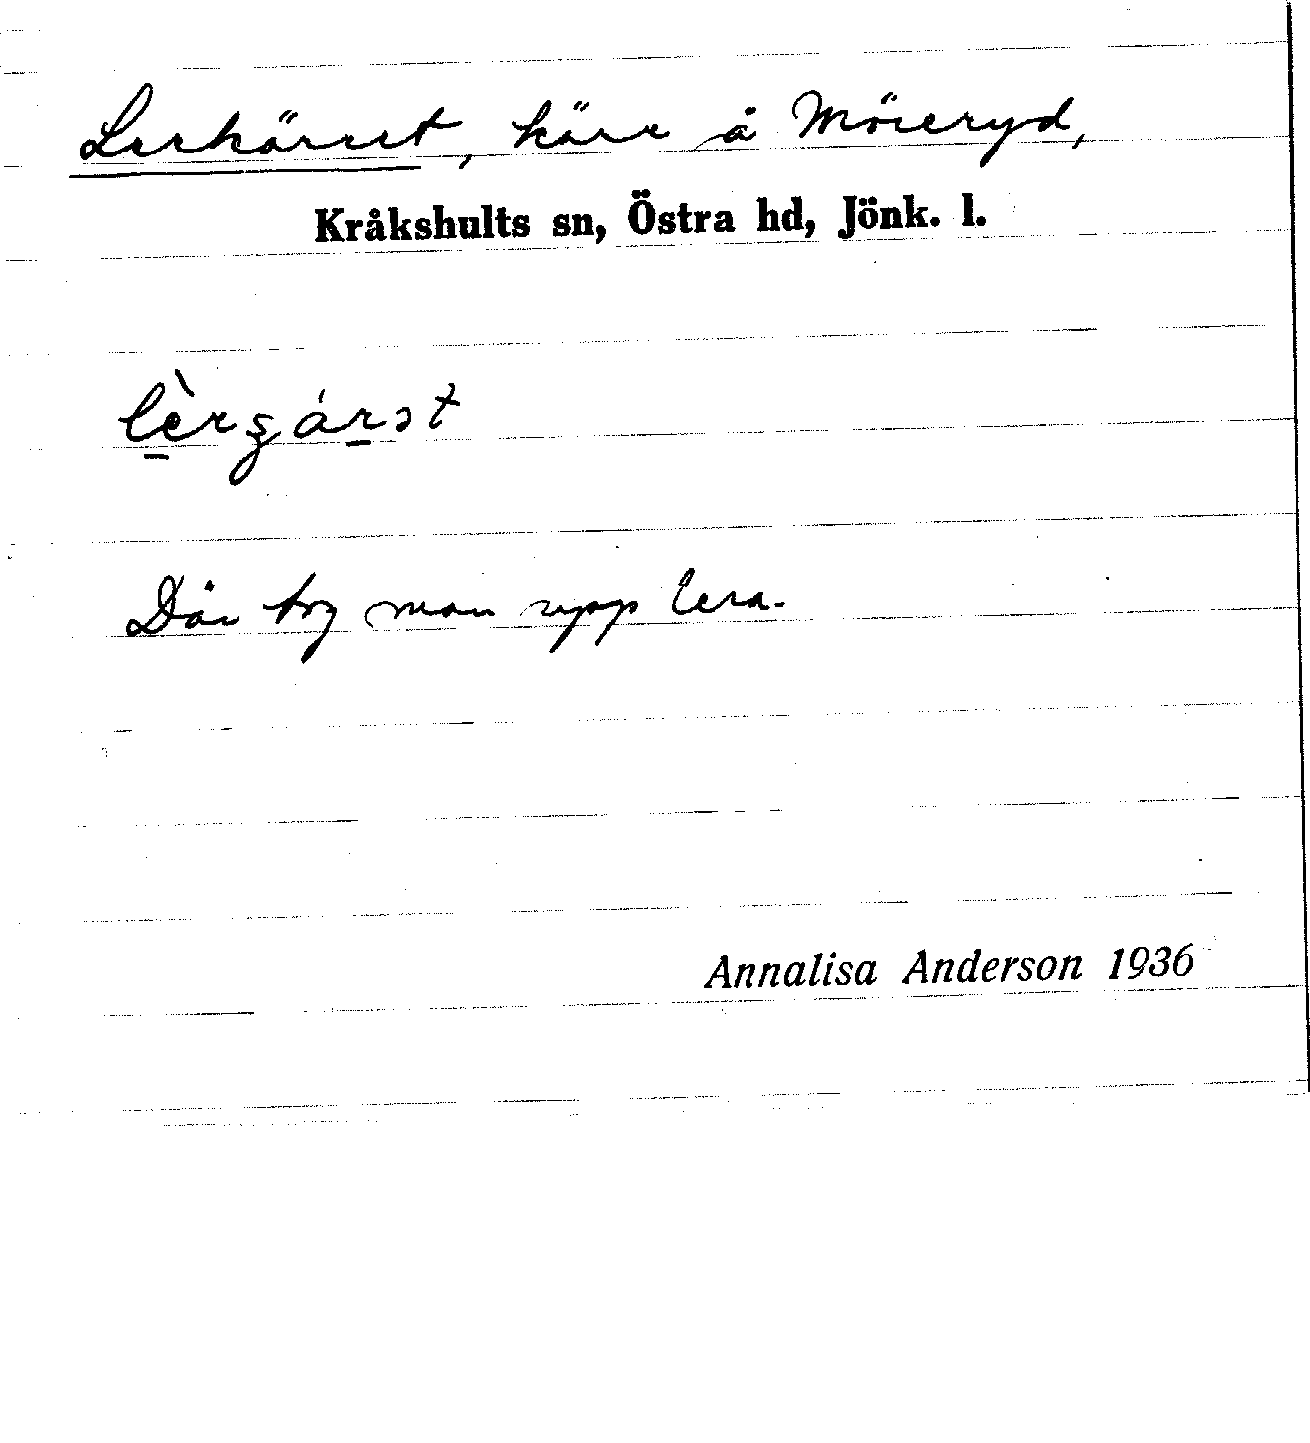 Lerkärret, kärr å Möreryd,
Kråkshults sn, Östra hd, Jönk. l.
Där tog man upp lera.
Annalisa Anderson 1936